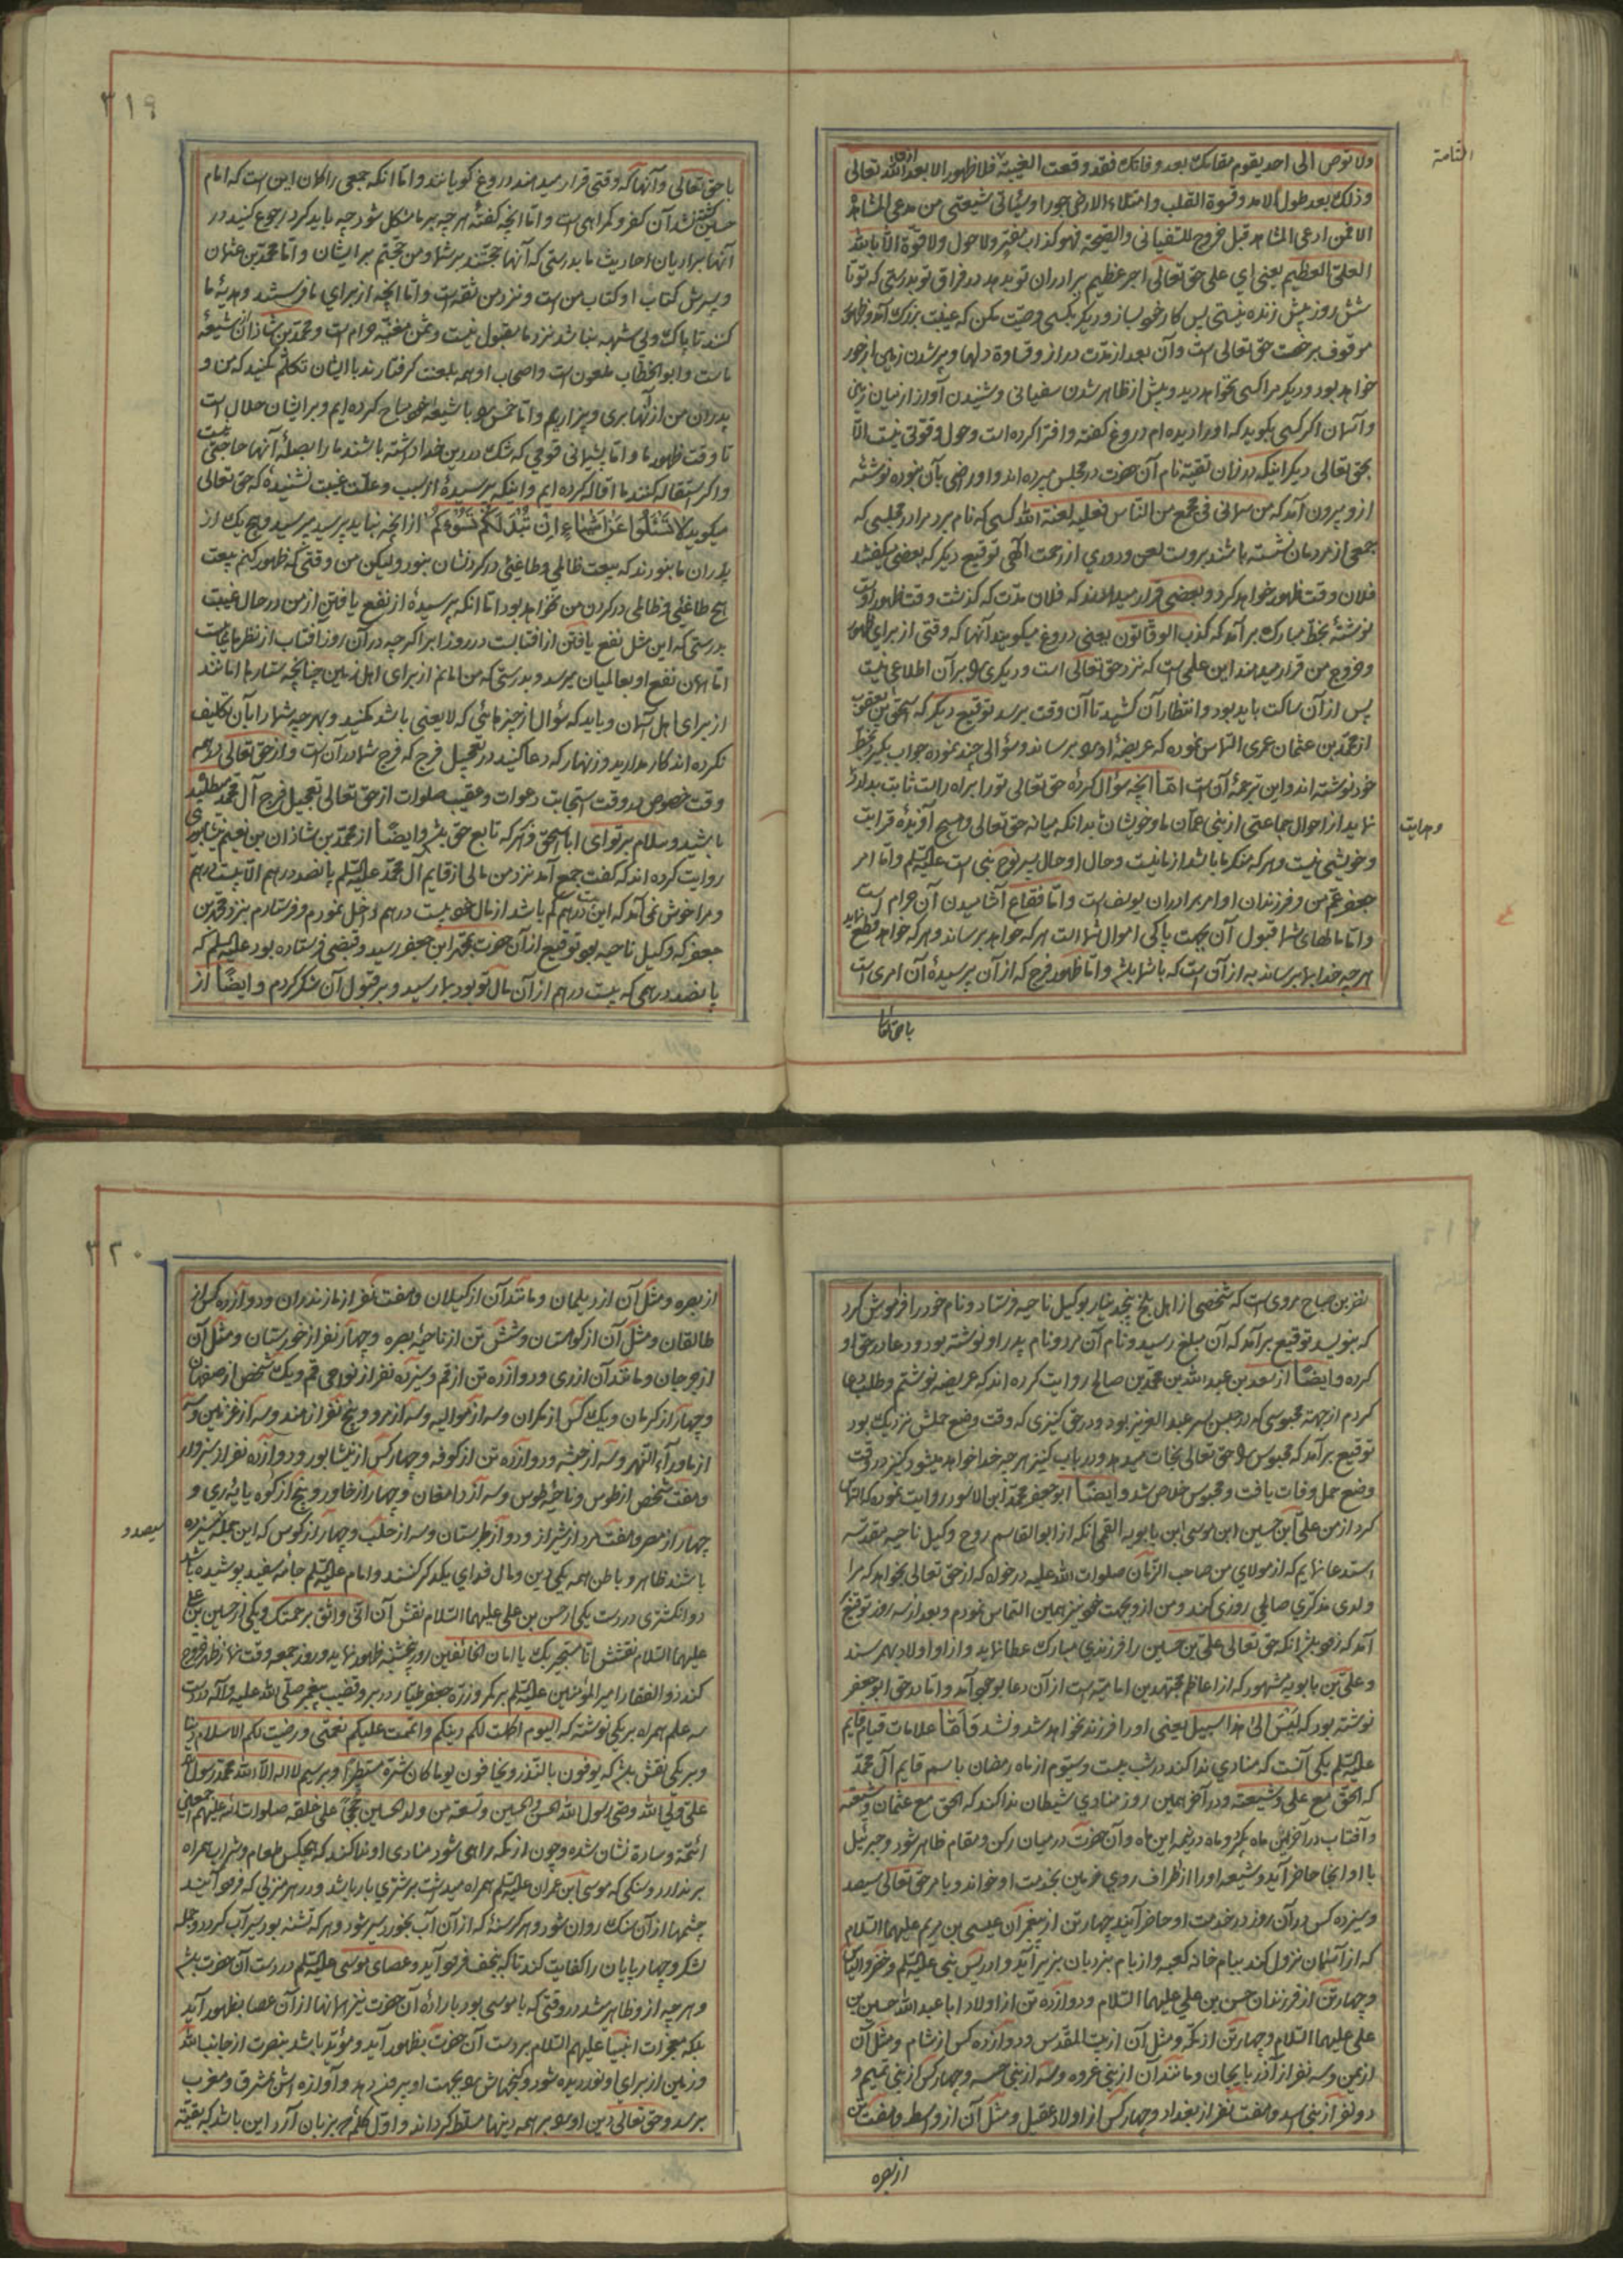 التامة
ولا توص الی احد یقوم مقامک بعد وفاتک فقد وقعت الغیبة فلا ظهور الا بعد اذن الله تعالی
وذلک بعد طول الامد وقسوة القلب وامتلاء الارض جورا وسیأتی شیعتی من یدعی المشاهدة
الا فمن ادعی المشاهده قبل خروج السفیانی والصیحة فهو کذاب مفتر ولا حول ولا قوة الا بالله
العلی العظیم یعنی ای علی حق تعالی اجر عظیم برادران تو بدهد در فراق تو بدرستی که تو تا
شش روز پیش زنده نیستی پس کار خود بساز و دیگر بکسی وصیت مکن که غیبت بزرک آمد و ظهور
موقوف برخصت حق تعالی است و آن بعد از مدت دراز و قساوة دلها و پر شدن زمین از جور
خواهد بود و دیکر مرا کسی نخواهد دید و پیش از ظاهر شدن سفیانی و شنیدن آواز از میان زمین
و آسمان اگر کسی بکوید که او را دیده ام دروغ کفته و افترا کرده است و حول و قوتی نیست الا
بحق تعالی دیکر اینکه در زمان تقیه نام آن حضرت در مجلس میبرده اند و او راضی بآن نبوده نوشته
ازو بیرون آمد که من سمانی فی مجمع من الناس فعلیه لعنة الله کسی که نام برد مرا در مجلسی که
جمعی از مردمان نشسته باشند بروست لعن و دوری از رحمت الهی توقیع دیکر که بعضی میکفتند
فلان وقت ظهور خواهد کرد و بعضی قرار میدادند که فلان مدت که کذشت وقت ظهور اوست
نوشتهٔ بخط مبارک برآمد که کذب الوقاتون یعنی دروغ میکویند آنها که وقتی از برای ظهور
و خروج من قرار میدهند این علمی است که نزد حق تعالی است و دیکری را بر آن اطلاعی نیست
پس از آن ساکت باید بود و انتظار آن کشید تا آن وقت برسد توقیع دیکر که اسحق بن یعقوب
از محمد بن عثمان عمری التماس نموده که عریضهٔ او را برساند و سؤالی چند نموده جواب بکیرد بخط
خود نوشته اند و این ترجمهٔ آن است اما آنچه سؤال کردهٔ حق تعالی تو را براه راست ثابت بدارد
نهاید از احوال جماعتی از بنی عمان ما و خویشان بدانکه میانه حق تعالی و هیچ آفریدهٔ قرابت
و خویشی نیست و هر که منکر ما باشد از ما نیست و حال او حال پسر نوح نبی است علیه السلم و اما امر
جعفر عم من و فرزندان او امر برادران یوسف است و اما فقاع آشامیدن آن حرام است
و اما مالهای شما قبول آن بجهت پاکی اموال شما است هر که خواهد برساند و هر که خواهد قطع نماید
هر چه خدا بما برساند به از آن است که با شما باشد و اما ظهور فرج که از آن پرسیدهٔ آن امری است
با حق تعالی
و هدایت
۳۱۹
با حق تعالی و آنها که وقتی قرار میدهند دروغ کو یانند و اما انکه جمعی را کمان این است که امام
حسین کشته نشد آن کفر و کمراهی است و اما انچه کفتهٔ هر چه بر ما مشکل شود چه باید کرد رجوع کنید در
آنها براویان احادیث ما بدرستی که آنها حجتند بر شما و من حجتم بر ایشان و اما محمد بن عثمان
و پدرش کتاب او کتاب من است و نزد من ثقه است و اما انچه از برای ما فرستند و هدیهٔ ما
کنند تا پاک و بی شبهه نباشد نزد ما مقبول نیست و ثمن مغنیه حرام است و محمد بن شاذان از شیعهٔ
ماست و ابو الخطاب ملعون است و اصحاب او همه بلعنت کرفتارند با ایشان تکلم مکنید که من و
پدران من از آنها بری و بیزاریم و اما خمس را با شیعه خود مباح کرده ایم و بر ایشان حلال است
تا وقت ظهور ما و اما پشیمانی قومی که شک در دین خدا داشته باشند ما را بصلهٔ آنها حاجتی نیست
و اکر استقاله کنند ما اقاله کرده ایم و اینکه پرسیدهٔ از سبب و علت غیبت نشنیدهٔ که حق تعالی
میکوید لا تسئلوا عن اشیاء ان تبد لکم تسؤکم از انچه نباید پرسید مپرسید و هیچ یک از
پدران ما نبودند که بیعت ظالمی و طاغیئی در کردنشان نبود ولیکن من وقتی که ظهور کنم بیعت
هیچ طاغیئی و ظالمی در کردن من نخواهد بود اما انکه پرسیدهٔ از نفع یافتن از من در حال غیبت
بدرستی که این مثل نفع یافتن از افتابست در روز ابر اکر چه در آن روز آفتاب از نظر ها غایب است
اما همان نفع او بعالمیان میرسد و بدرستی که من امانم از برای اهل زمین چنانچه ستارها امانند
از برای اهل آسمان و باید که سؤال از چیزهائی که لا یعنی باشد نکنید و بهر چه شما را بآن تکلیف
نکرده اند کار مدارید و زنهار که دعا کنید در تعجیل فرج که فرج شما در آن است و از حق تعالی در همه
وقت خصوص در وقت استجابت دعوات و عقیب صلوات از حق تعالی تعجیل فرج آل محمد مطلبید
باشید و سلام بر تو ای ابا اسحق و هر که تابع حق باشد و ایضا از محمد بن شاذان بن نعیم نیشابوری
روایت کرده اند که کفت جمع آمد نزد من مالی از قایم آل محمد علیه السلم پانصد درهم الا بیست درهم
و مرا خوش نمی آمد که این بیست درهم کم باشد از مال خود بیست درهم داخل نمودم و فرستادم نزد محمد بن
جعفر که وکیل ناحیه بود توقیع از آن حضرت بمحمد ابن جعفر رسید و قبضی فرستاده بود علیه السلم که
پانصد درهمی که بیست درهم از آن مال تو بود بما رسید و بر قبول آن شکر کردم و ایضا از
نصر بن صباح مروی است که شخصی از اهل بلخ پنجدینار بوکیل ناحیه فرستاد و نام خود را فراموش کرد
که بنویسد توقیع برآمد که آن مبلغ رسید و نام آن مرد و نام پدر او نوشته بود و دعا در حق او
کرده و ایضا از سعد بن عبد الله بن محمد بن صالح روایت کرده اند که عریضه نوشتم و طلب دعا
کردم از جهة محبوسی که در حبس پسر عبد العزیز بود و در حق کنیزی که وقت وضع حملش نزدیک بود
توقیع برآمد که محبوس را حق تعالی نجات میدهد و در باب کنیز هر چه خدا خواهد میشود کنیز در وقت
وضع حمل وفات یافت و محبوس خلاص شد و ایضا ابو جعفر محمد ابن الاسود روایت نموده که التماس
کرد از من علی ابن حسین ابن موسی ابن بابویه القمی انکه از ابو القاسم روح وکیل ناحیه مقدسه
استدعا نمایم که از مولای من صاحب الزمان صلوات الله علیه درخواهد که از حق تعالی بخواهد که مرا
ولدی مذکری صالحی روزی کند و من ازو بجهت خود نیز همین التماس نمودم و بعد از سه روز توقیع
آمد که زود باشد انکه حق تعالی علی بن حسین را فرزندی مبارک عطا نماید و از او اولاد بهم رسند
و علی بن بابویه مشهور که از اعاظم مجتهدین امامیه است از آن دعا بوجود آمد و اما در حق ابو جعفر
نوشته بود که لیس الی هذا سبیل یعنی او را فرزند نخواهد شد و نشد و اما علامات قیام قایم
علیه السلم یکی آنست که منادی ندا کند در شب بیست و سیوم از ماه رمضان باسم قایم آل محمد
که الحق مع علی و شیعته و در آخر همین روز منادی شیطان ندا کند که الحق مع عثمان و شیعته
و آفتاب در آخر این ماه بکیرد و ماه در نیمه این ماه و آن حضرت در میان رکن و مقام ظاهر شود و جبرئیل
با او انجا حاضر آید و شیعه او را از اطراف روی زمین بخدمت او خواند و بامر حق تعالی سیصد
و سیزده کس در آن روز در خدمت او حاضر آیند چهار تن از پیغمبران عیسی بن مریم علیهما السلام
که از آسمان نزول کند ببام خانه کعبه و از بام بنردبان بزیر آید و ادریس نبی علیه السلم و خضر و الیاس
و چهار تن از فرزندان حسن بن علی علیهما السلام و دوازده تن از اولاد ابا عبد الله حسین بن
علی علیهما السلام و چهار تن از مکه و مثل آن از بیت المقدس و دوازده کس از شام و مثل آن
از یمن و سه نفر از آذربایجان و مانند آن از بنی عروه و سه از بنی حسه و چهار کس از بنی تمیم و
دو نفر از بنی اسد و هفت نفر از بغداد و چهار کس از اولاد عقیل و مثل آن از واسط و هفت تن
از بصره
۳۲۰
از بصره و مثل آن از دیلمان و مانند آن از کیلان و هفت نفر از مازندران و دوازده کس از
طالقان و مثل آن از کوهستان و شش تن از ناحیهٔ بصره و چهار نفر از خوزستان و مثل آن
از جرجان و مانند آن از ری و دوازده تن از قم و سیزده نفر از نواحی قم و یک شخص از صفهان
و چهار از کرمان و یک کس از مکران و سه از موالیه و سه از مرو و پنج نفر از هند و سه از غزنین و سه
از ماورآء النهر و سه از حبشه و دوازده تن از کوفه و چهار کس از نیشابور و دوازده نفر از سبزوار
و هفت شخص از طوس و ناحیهٔ طوس و سه از دامغان و چهار از خاور و پنج از کوه پایهٔ ری و
چهار از مصر و هفت مرد از شیراز و دو از طبرستان و سه از حلب و چهار از کوس که این جمله سیزده
سیصد و
باشند ظاهر و باطن همه یکی دین و مال فدای یکدیکر کنند و امام علیه السلم جامه سفید پوشیده باشد
دو انکشتری در دست یکی از حسن بن علی علیهما السلام نقش آن انی واثق برحمتک و یکی از حسین بن علی
علیهما السلام نقشش انا مستجیر بک یا امان الخائفین روز پنجشنبه ظهور نماید و روز جمعه وقت نماز ظهر خروج
کند ذو الفقار امیر المؤمنین علیه السلم بر کمر و زره جعفر طیار در بر و قضیب پیغمبر صلی الله علیه و آله در دست
سه علم همراه بر یکی نوشته که الیوم اکملت لکم دینکم و اتممت علیکم نعمتی و رضیت لکم الاسلام دینا
و بر یکی نقش باشد که یوفون بالنذر و یخافون یوما کان شره مستطیرا و بر سیم لا اله الا الله محمد رسول الله
علی ولی الله وصی رسول الله الحسن و الحسین و تسعة من ولد الحسین حججی علی خلقه صلوات الله علیهم اجمعین
ائمة و سادة نشان شده و چون از مکه راهی شود منادی او ندا کند که هیچکس طعام و شراب همراه
بر ندارد و سنکی که موسی ابن عمران علیه السلم همراه میداشت بر شتری بار باشد و در هر منزلی که فرود آیند
چشمها از آن سنک روان شود و هر کرسنهٔ که از آن آب بخورد سیر شود و هر که تشنه بود سیرآب کردد و جمله
لشکر و چهارپایان را کفایت کند تا که بنجف فرود آید و عصای موسی علیه السلم در دست آن حضرت باشد
و هر چه از او ظاهر شد در وقتی که با موسی بود بارادهٔ آن حضرت نیز همانها از آن عصا بظهور آید
بلکه معجزات انبیا علیهم السلام بر دست آن حضرت بظهور آید و مؤید باشد بنصرت از جانب الله
و زمین از برای او نوردیده شود و کنجهاش را بجهت او بیرون دهد و آوازه اش بمشرق و مغرب
برسد و حق تعالی دین او را بر همه دینها مسلط کرداند و اول کلمهٔ که بزبان آرد این باشد که بقیة